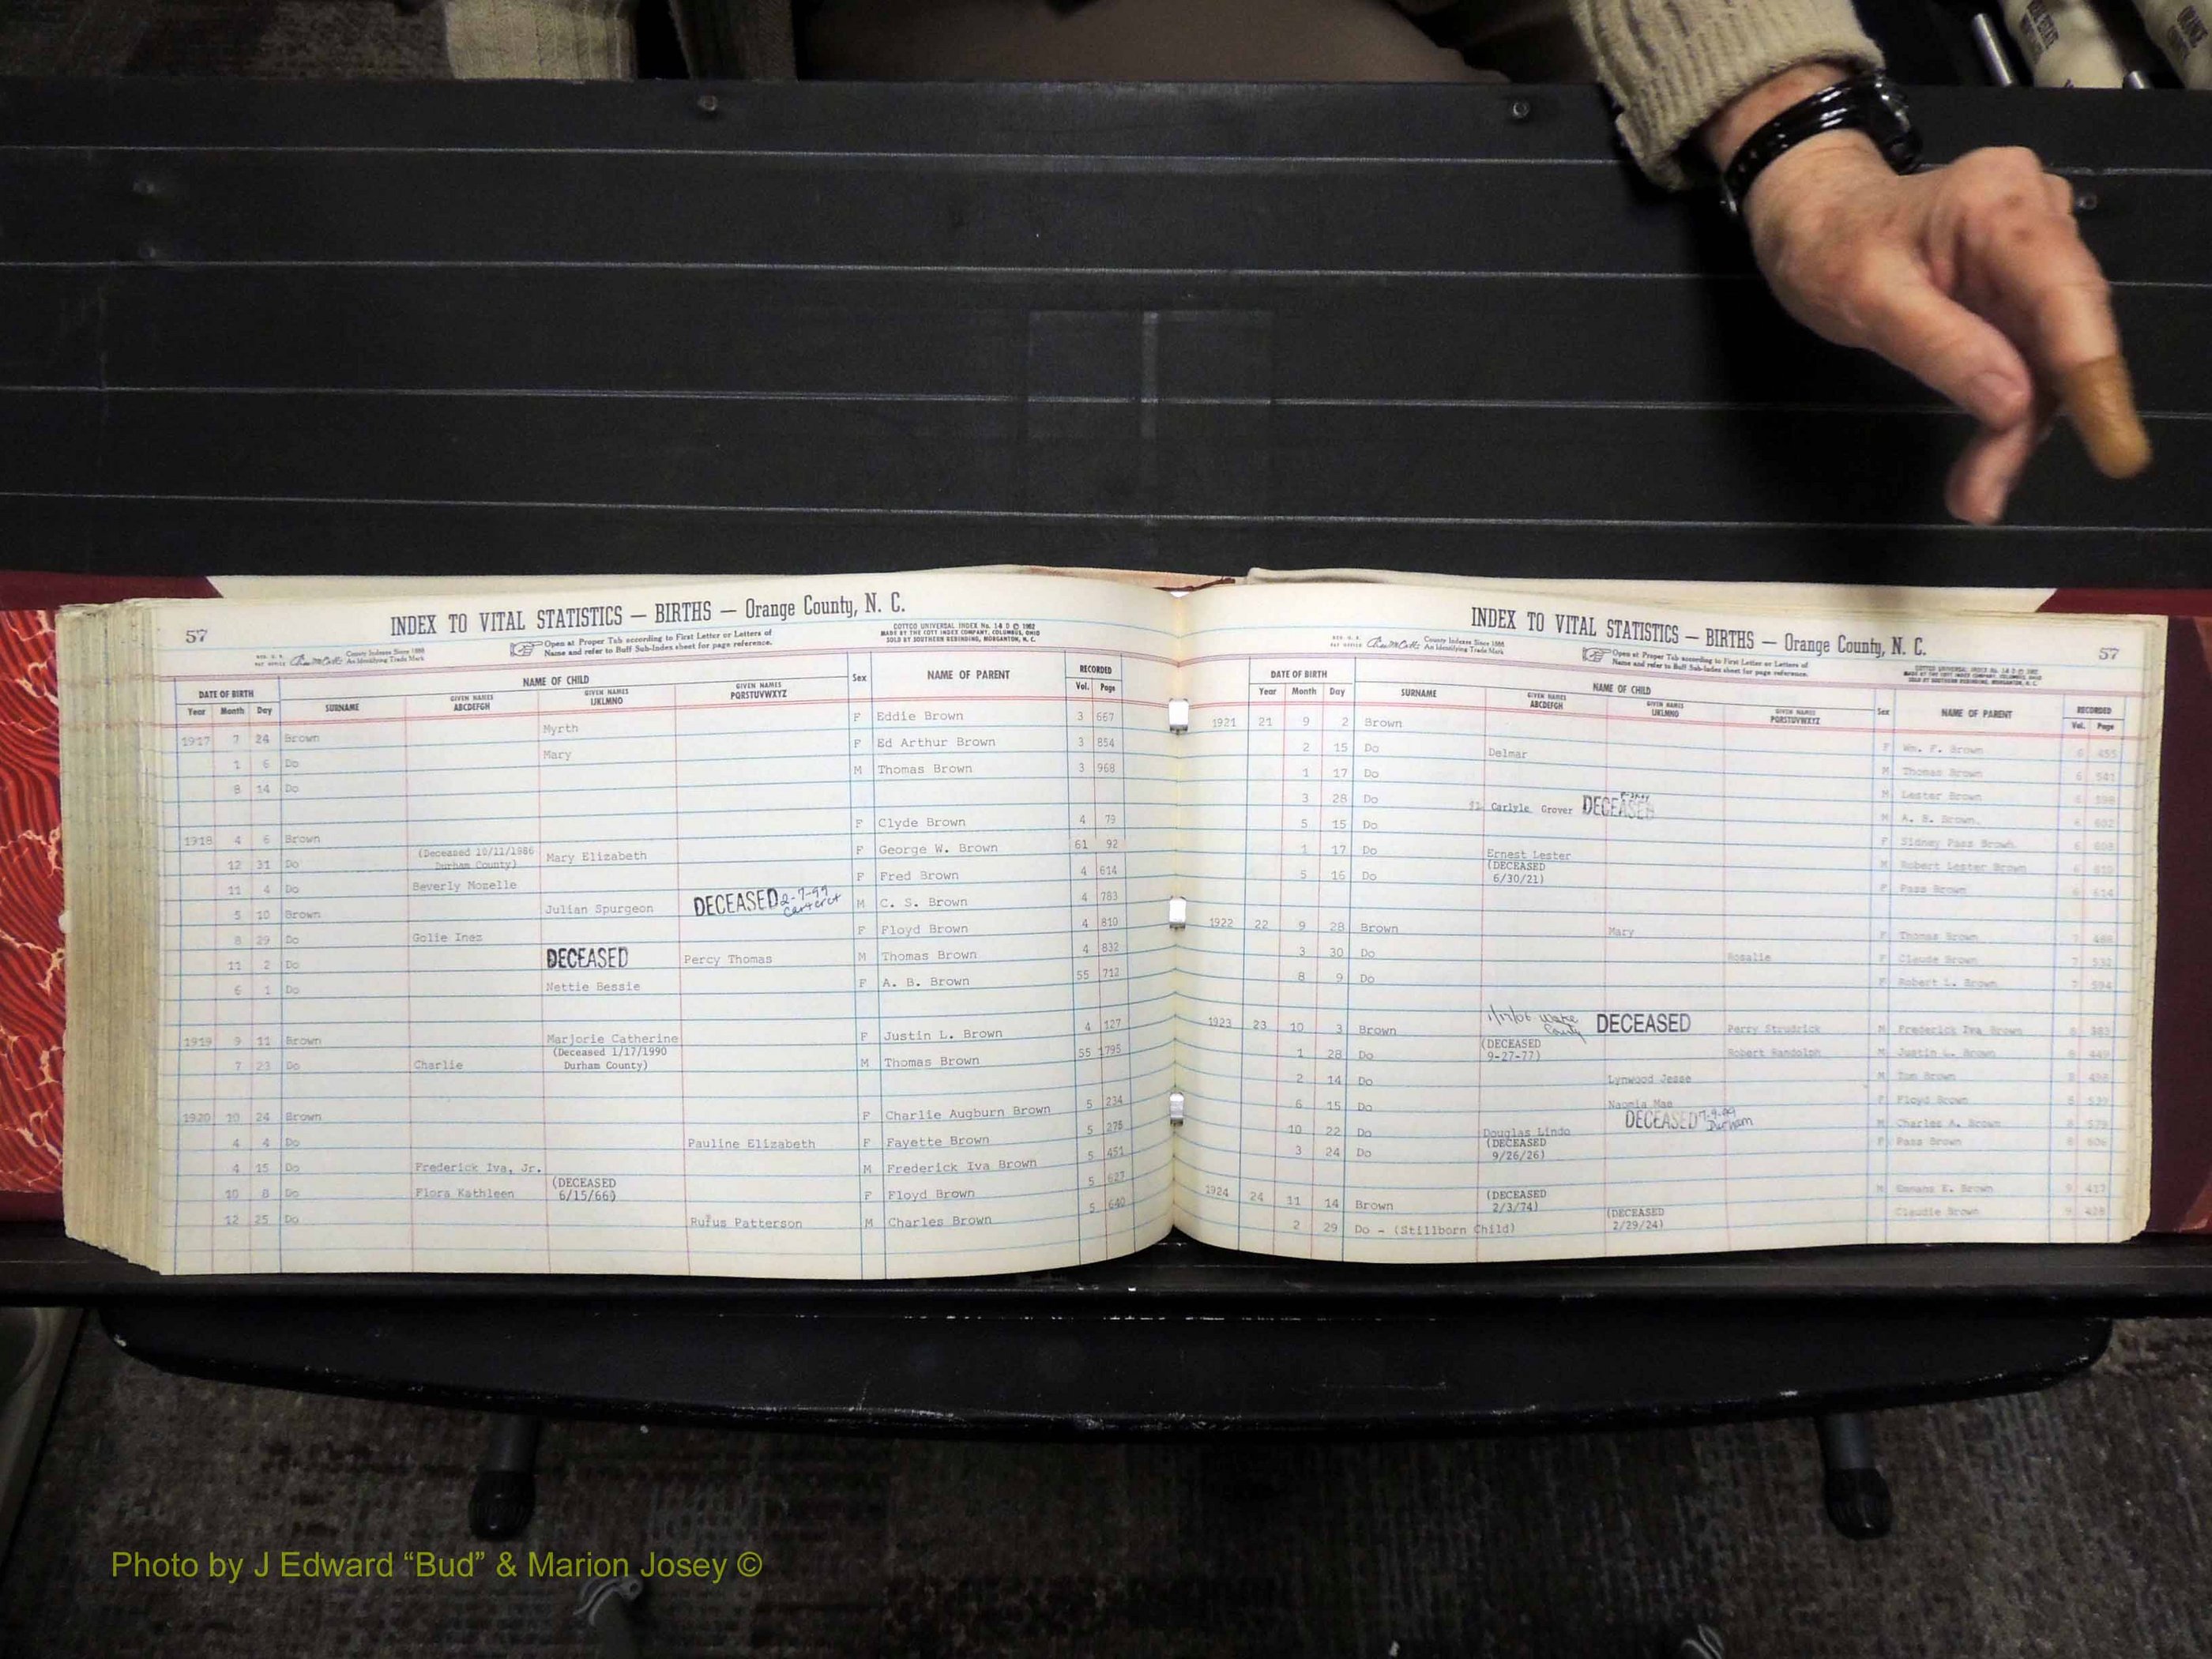 57
INDEX TO VITAL STATISTICS — BIRTHS — Orange County, N. C.
County Indexes Since 1888
An Identifying Trade Mark
Open at Proper Tab according to First Letter or Letters of
Name and refer to Buff Sub-Index sheet for page reference.
COTTCO UNIVERSAL INDEX No. 14 D © 1962
MADE BY THE COTT INDEX COMPANY, COLUMBUS, OHIO
SOLD BY SOUTHERN REBINDING, MORGANTON, N. C.
DATE OF BIRTH NAME OF CHILD Sex NAME OF PARENT RECORDED
Year Month Day SURNAME GIVEN NAMES ABCDEFGH GIVEN NAMES IJKLMNO GIVEN NAMES PQRSTUVWXYZ Vol. Page
1917 7 24 Brown Myrth F Eddie Brown 3 667
1 6 Do Mary F Ed Arthur Brown 3 854
8 14 Do M Thomas Brown 3 968
1918 4 6 Brown F Clyde Brown 4 79
12 31 Do (Deceased 10/11/1986 Durham County) Mary Elizabeth F George W. Brown 61 92
11 4 Do Beverly Mozelle F Fred Brown 4 614
5 10 Brown Julian Spurgeon DECEASED 2-7-99 Carteret M C. S. Brown 4 783
8 29 Do Golie Inez F Floyd Brown 4 810
11 2 Do DECEASED Percy Thomas M Thomas Brown 4 832
6 1 Do Nettie Bessie F A. B. Brown 55 712
1919 9 11 Brown Marjorie Catherine F Justin L. Brown 4 127
7 23 Do Charlie (Deceased 1/17/1990 Durham County) M Thomas Brown 55 1795
1920 10 24 Brown F Charlie Augburn Brown 5 234
4 4 Do Pauline Elizabeth F Fayette Brown 5 275
4 15 Do Frederick Iva, Jr. M Frederick Iva Brown 5 451
10 8 Do Flora Kathleen (DECEASED 6/15/66) F Floyd Brown 5 627
12 25 Do Rufus Patterson M Charles Brown 5 640
INDEX TO VITAL STATISTICS — BIRTHS — Orange County, N. C.
57
County Indexes Since 1888
An Identifying Trade Mark
Open at Proper Tab according to First Letter or Letters of
Name and refer to Buff Sub-Index sheet for page reference.
DATE OF BIRTH NAME OF CHILD Sex NAME OF PARENT RECORDED
Year Month Day SURNAME GIVEN NAMES ABCDEFGH GIVEN NAMES IJKLMNO GIVEN NAMES PQRSTUVWXYZ Vol. Page
1921 21 9 2 Brown F Wm. F. Brown 6 455
2 15 Do Delmar M Thomas Brown 6 581
1 17 Do M Lester Brown 6
3 28 Do Carlyle Grover DECEASED M A. B. Brown 6 602
5 15 Do F Sidney Pass Brown 6 608
1 17 Do Ernest Lester (DECEASED 6/30/21) M Robert Lester Brown 6
5 16 Do F Pass Brown 6 614
1922 22 9 28 Brown Mary F Thomas Brown 7 488
3 30 Do Rosalie F Claude Brown 7 532
8 9 Do F Robert L. Brown 7 594
1923 23 10 3 Brown 1/17/06 Wake County DECEASED Perry Strudrick M Frederick Iva Brown 8 383
1 28 Do (DECEASED 9-27-77) Robert Randolph M Justin L. Brown 8 449
2 14 Do Lynwood Jesse M Tom Brown 8 498
6 15 Do Naomia Mae F Floyd Brown 8 539
10 22 Do Douglas Lindo DECEASED 7-9-99 Durham M Charles A. Brown 8 579
3 24 Do (DECEASED 9/26/26) F Pass Brown 8 606
1924 24 11 14 Brown (DECEASED 2/3/74) M E. Brown 9 417
2 29 Do - (Stillborn Child) (DECEASED 2/29/24) Claudie Brown 9 428
Photo by J Edward “Bud” & Marion Josey ©